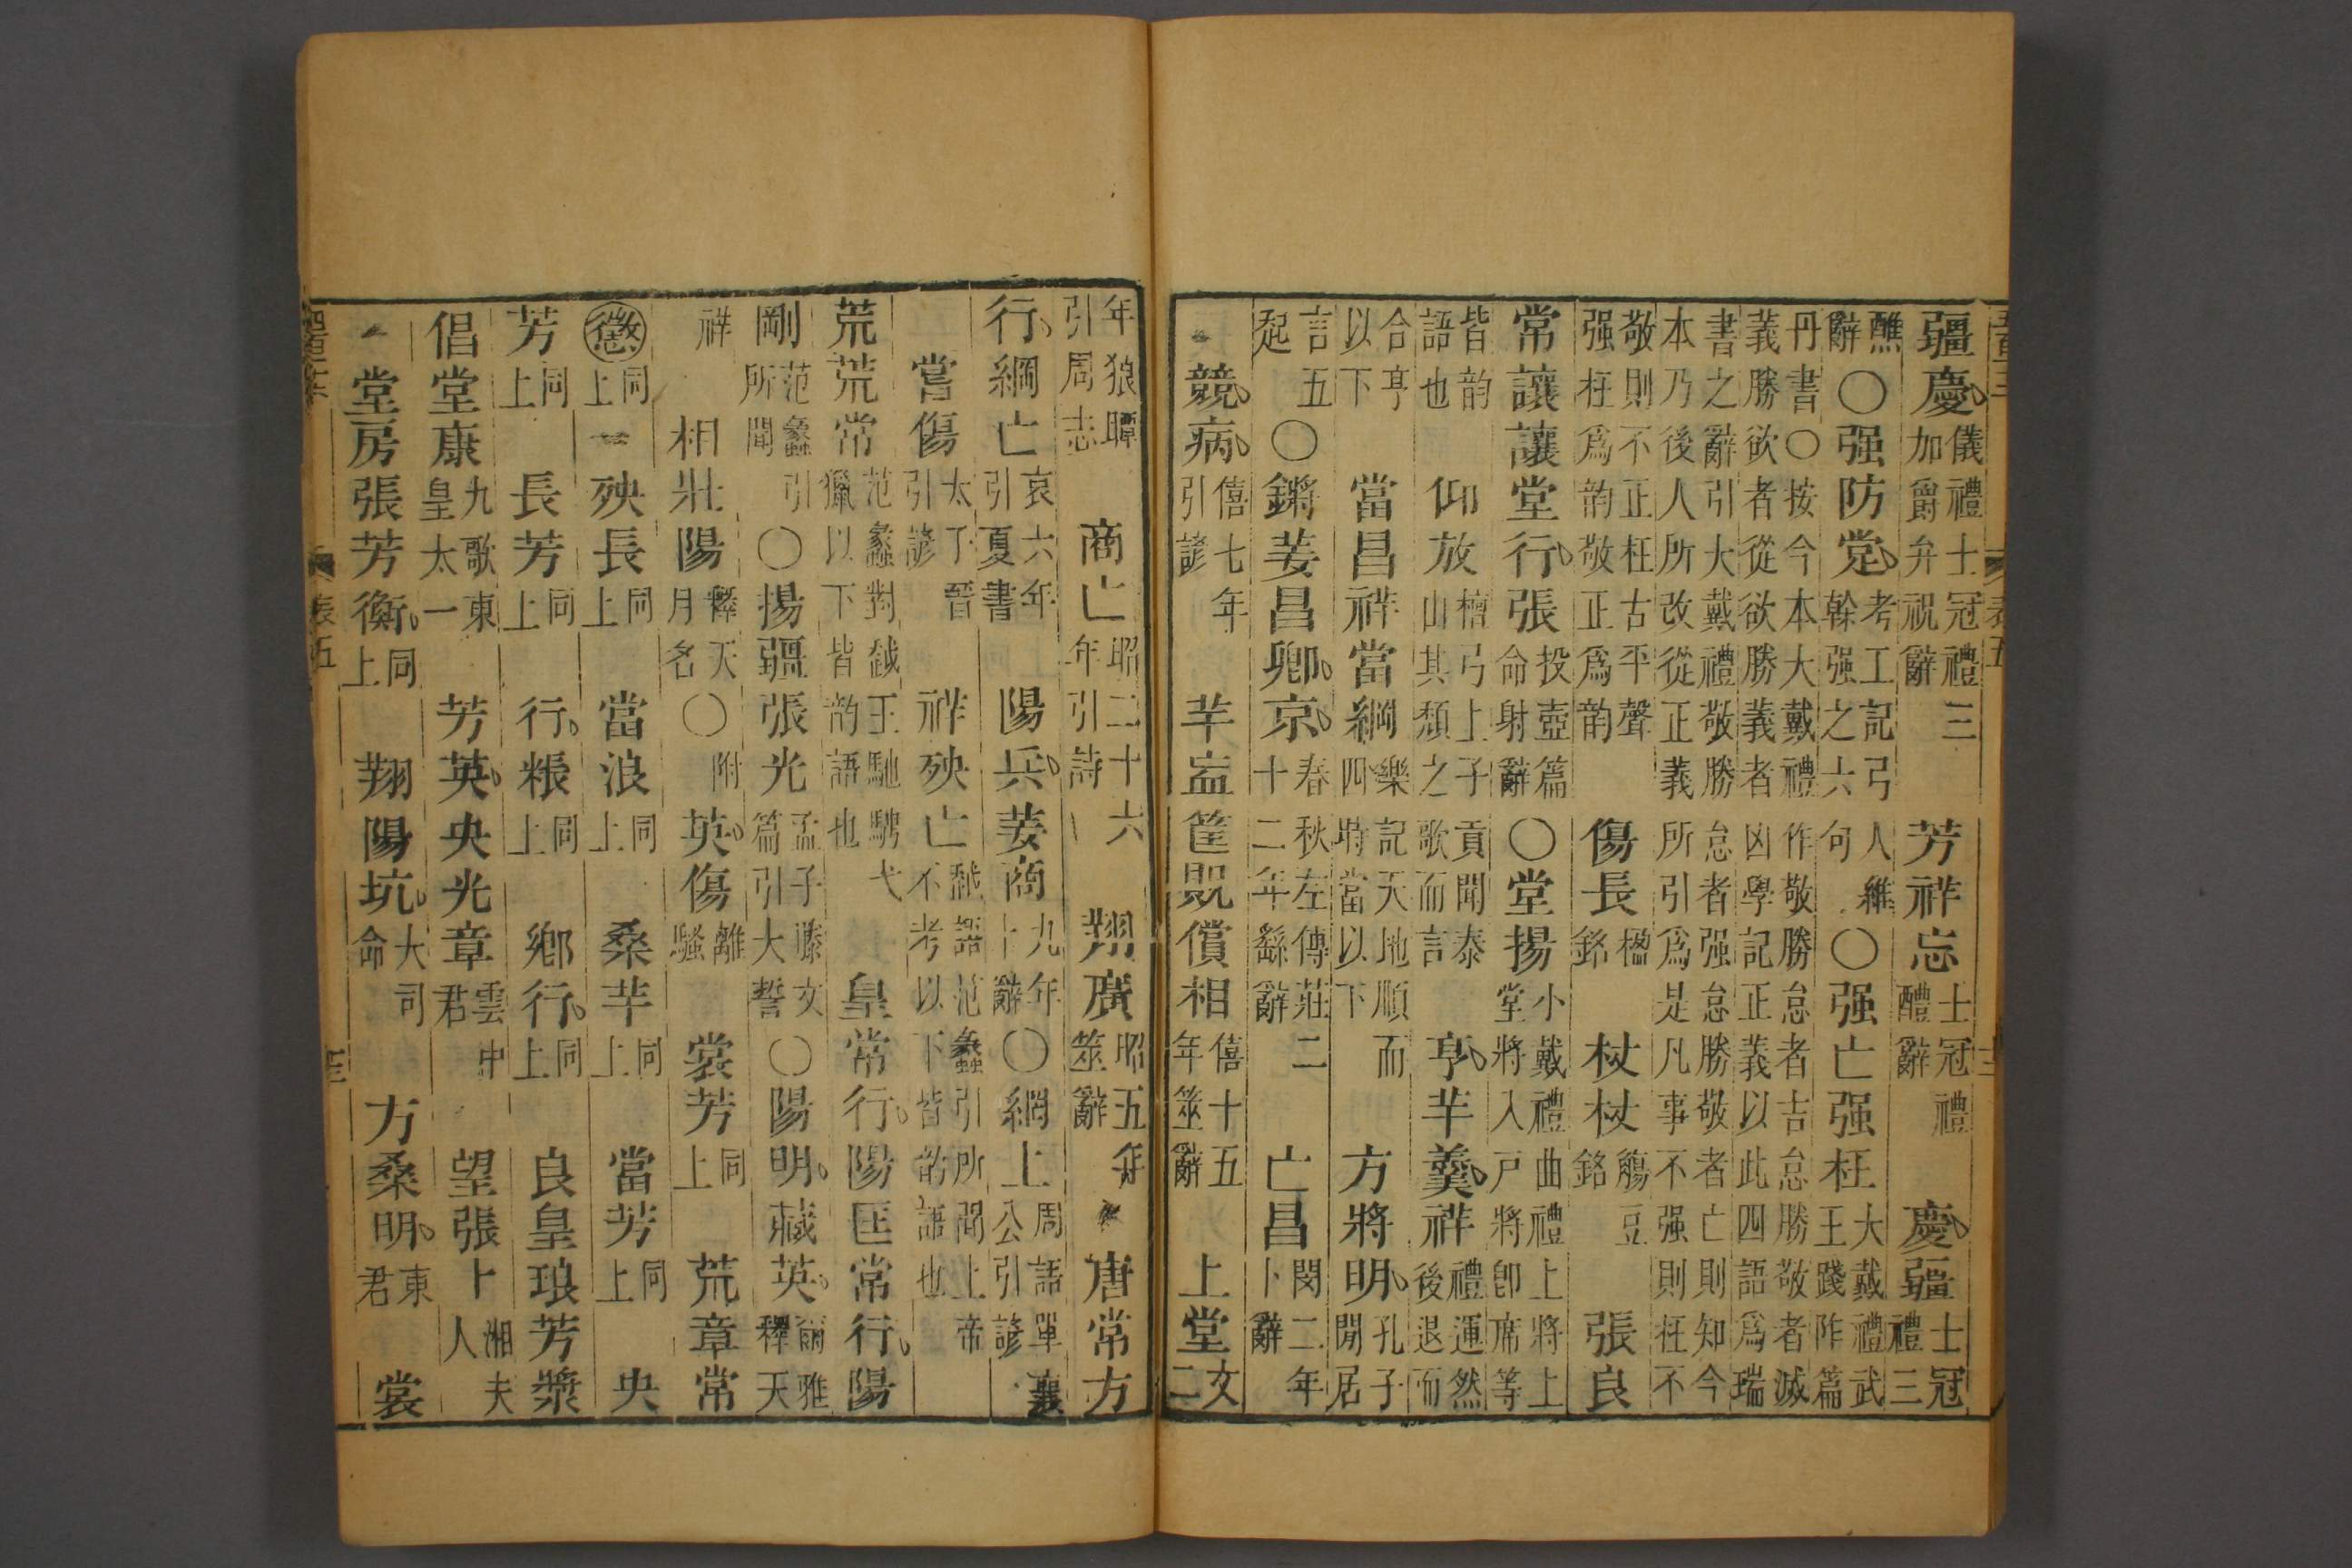 疆慶儀禮士冠禮三加爵弁祝辭 芳祥忘士冠禮醴辭 慶疆士冠禮三
醮辭○强防党考工記弓人維幹强之六句○强亡强枉大戴禮武王踐阼篇
丹書○按今本大戴禮作敬勝怠者吉怠勝敬者滅義勝欲者從欲勝義者凶學記正義以此四語爲瑞
書之辭引大戴禮敬勝怠者强怠勝敬者亡則知今本乃後人所改從正義所引爲是凡事不强則枉不
敬則不正枉古平聲强枉爲韵敬正爲韵 傷長楹銘 杖杖觴豆銘 張良
常讓讓堂行張投壺篇命射辭○堂揚小戴禮曲禮上將上堂將入戶將卽席等
皆韵語也 仰放檀弓上子貢聞泰山其頹之歌而言 亨羊羹祥禮運然後退而
合亨以下 當昌祥當綱樂記天地順而四時當以下 方將明孔子閒居
言五起○鏘姜昌卿京春秋左傳莊二十二年繇辭 亡昌閔二年卜辭
競病僖七年引諺 羊衁筐貺償相僖十五年筮辭 上堂文二
年狼瞫引周志 商亡昭二十六年引詩 翔廣昭五年筮辭 唐常方
行綱亡哀六年引夏書 陽兵姜商九年卜辭○網上周語單襄公引諺
嘗傷太子晉引諺 祥殃亡越語范蠡引所聞上帝不考以下皆韵語也
荒荒常范蠡對越王馳騁弋獵以下皆韵語也 皇常行陽匡常行陽
剛范蠡引所聞○揚疆張光孟子滕文篇引大誓○陽明藏英爾雅釋天
祥 相壯陽釋天月名○附英傷離騷 裳芳同上 荒章常
懲同上 殃長同上 當浪同上 桑羊同上 當芳同上 央
芳同上 長芳同上 行粻同上 鄉行同上 良皇琅芳漿
倡堂康九歌東皇太一 芳英央光章雲中君 望張卜湘夫人
堂房張芳衡同上 翔陽坑大司命 方桑明東君 裳
表五